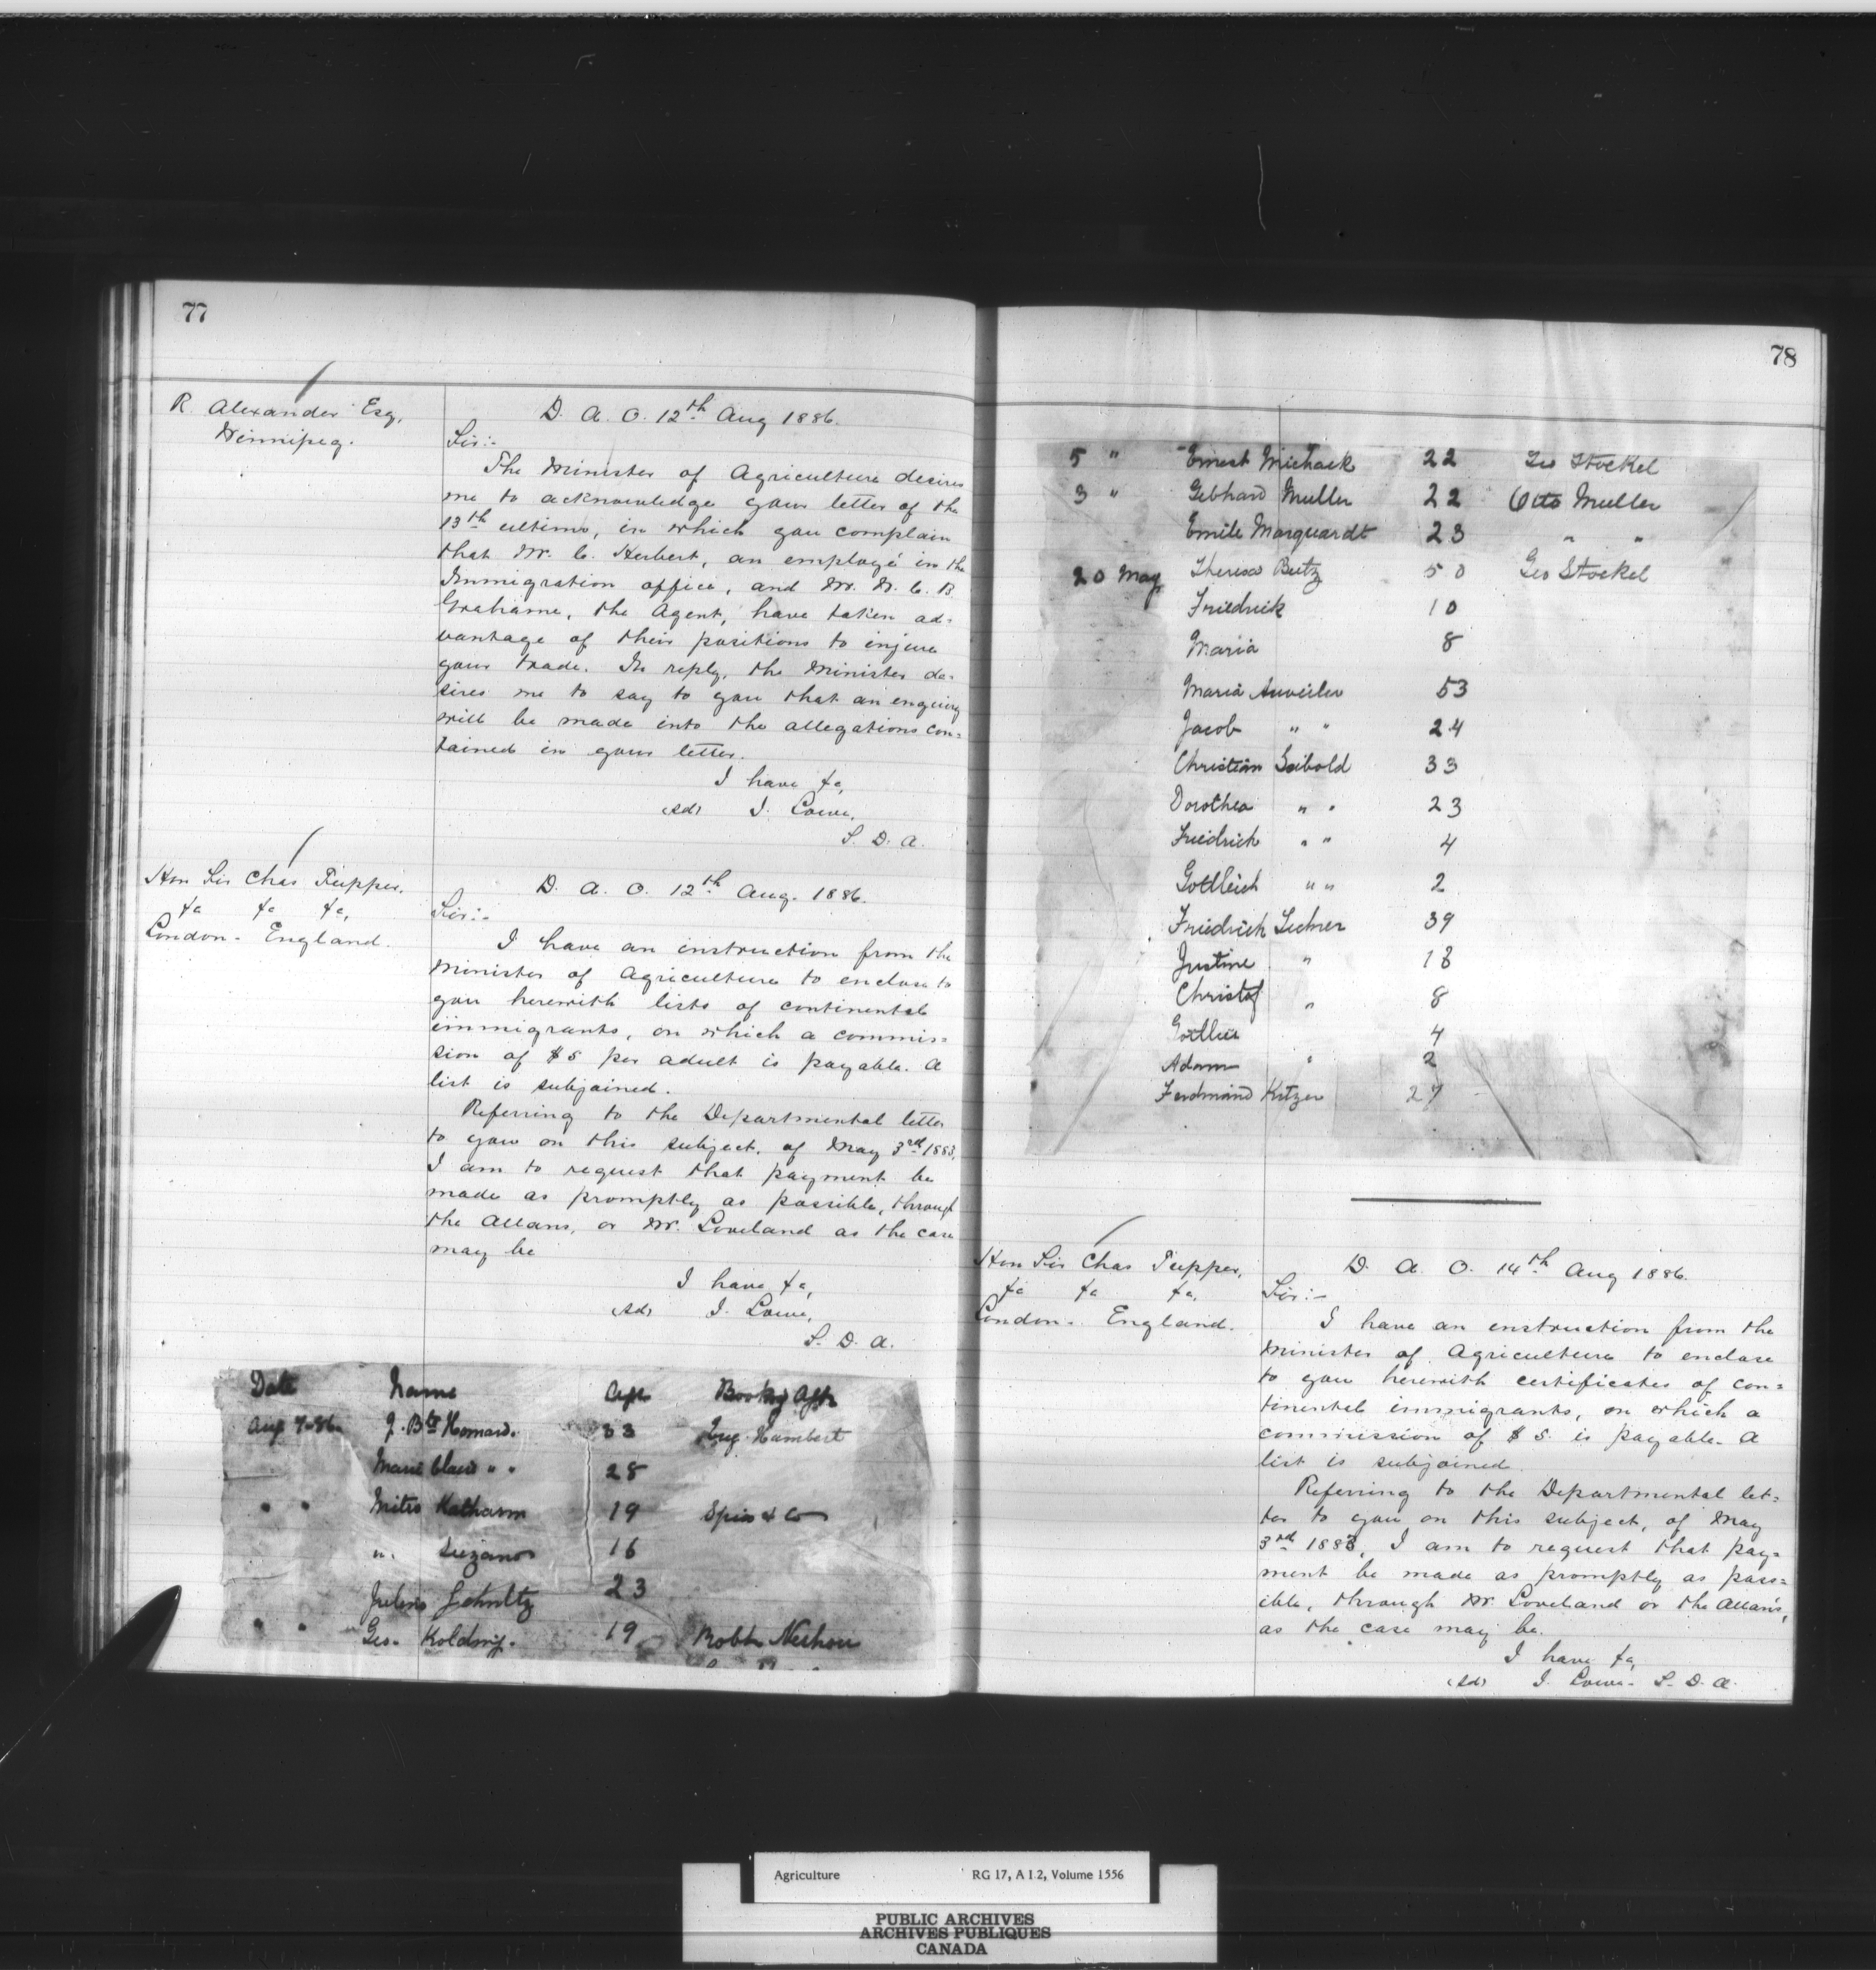 77
R. Alexander Esq,
Winnipeg.
D. A. O. 12th Aug 1886.
Sir:-
The Minister of Agriculture desires
me to acknowledge your letter of the
13th ultimo, in which you complain
that Mr. C. Herbert, an employé in the
Immigration office, and Mr. W. C. B.
Grahame, the Agent, have taken ad-
vantage of their positions to injure
your trade. In reply, the Minister de-
sires me to say to you that an enquiry
will be made into the allegations con-
tained in your letter.
I have &c,
(Sd) J. Lowe,
S. D. A.
Hon Sir Chas Tupper,
&c &c &c,
London - England.
D. A. O. 12th Aug. 1886.
Sir:-
I have an instruction from the
Minister of Agriculture to enclose to
you herewith lists of continental
immigrants, on which a commis-
sion of $5 per adult is payable. A
list is subjoined.
Referring to the Departmental letter
to you on this subject, of May 3rd 1883,
I am to request that payment be
made as promptly as possible, through
the Allans, or Mr. Loveland as the case
may be
I have &c,
(Sd) J. Lowe,
S. D. A.
Date Name Age Book'g Agt
Aug 7-86 J. Bte Homard. 33 Humbert
Marie " " 28
" " Mitro Katharin 19 Spiro & Co
". Suzanor 16
Julius Schultz 23
" " Geo. 19 Robt
78
5 " Ernest Michaek 22 Geo Stockel
3 " Gebhard Muller 22 Otto Muller
Emile Marquardt 23 " "
20 May Theresa Beitz 50 Geo Stockel
Friedrick 10
Maria 8
Maria Auweiler 53
Jacob " " 24
Christian Seibold 33
Dorothea " " 23
Friedrich " " 4
Gottleich " " 2
Friedrich Lechner 39
Justine " 18
Christof " 8
4
Adam " 2
Ferdinand Kitzer 27
Hon Sir Chas Tupper,
&c &c &c,
London - England.
D. A. O. 14th Aug 1886.
Sir:-
I have an instruction from the
Minister of Agriculture to enclose
to you herewith certificates of con-
tinental immigrants, on which a
commission of $5. is payable. A
list is subjoined.
Referring to the Departmental let-
ter to you on this subject, of May
3rd 1883, I am to request that pay-
ment be made as promptly as poss-
ible, through Mr. Loveland or the Allans,
as the case may be.
I have &c,
(Sd) J. Lowe - S. D. A.
Agriculture RG 17, A I.2, Volume 1556
PUBLIC ARCHIVES
ARCHIVES PUBLIQUES
CANADA